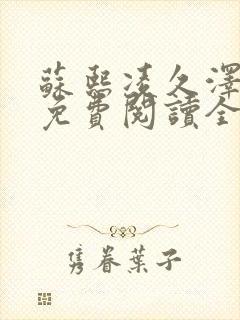 蘇熙凌久澤
免費閱讀全
隽眷葉子